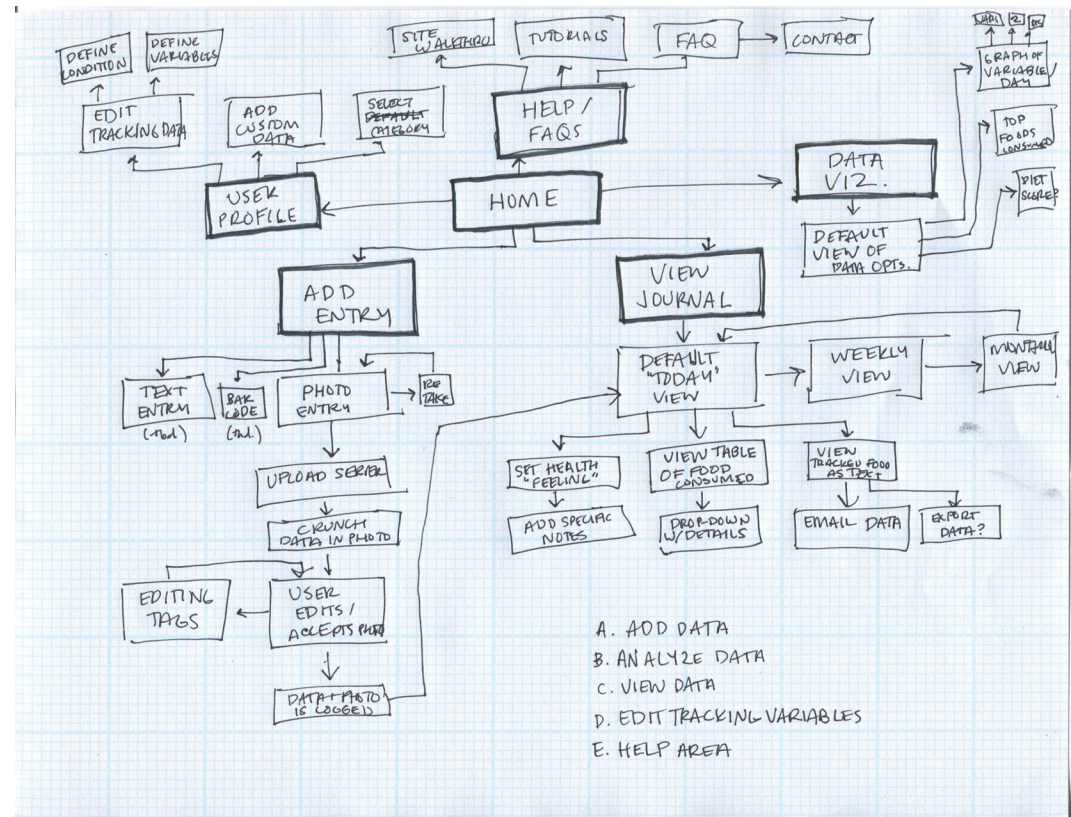 DEFINE
CONDITION
DEFINE
VARIABLES
SITE
WALKTHRU
TUTORIALS
FAQ
CONTACT
VAR1
2
GRAPH OF
VARIABLE/
DAY
EDIT
TRACKING DATA
ADD
CUSTOM
DATA
SELECT
DEFAULT
CATEGORY
HELP/
FAQS
TOP
FOODS
CONSUMED
DATA
VIZ.
DIET
SCORE?
USER
PROFILE
HOME
DEFAULT
VIEW OF
DATA OPTS.
ADD
ENTRY
VIEW
JOURNAL
TEXT
ENTRY
(tbd.)
BAR
CODE
(tbd.)
PHOTO
ENTRY
RE
TAKE
DEFAULT
"TODAY"
VIEW
WEEKLY
VIEW
MONTHLY
VIEW
UPLOAD SERVER
SET HEALTH
"FEELING"
VIEW TABLE
OF FOOD
CONSUMED
VIEW
TRACKED FOOD
AS TEXT
CRUNCH
DATA IN PHOTO
ADD SPECIFIC
NOTES
DROP-DOWN
W/DETAILS
EMAIL DATA
EXPORT
DATA?
EDITING
TAGS
USER
EDITS/
ACCEPTS PHOTO
DATA + PHOTO
IS LOGGED
A. ADD DATA
B. ANALYZE DATA
C. VIEW DATA
D. EDIT TRACKING VARIABLES
E. HELP AREA